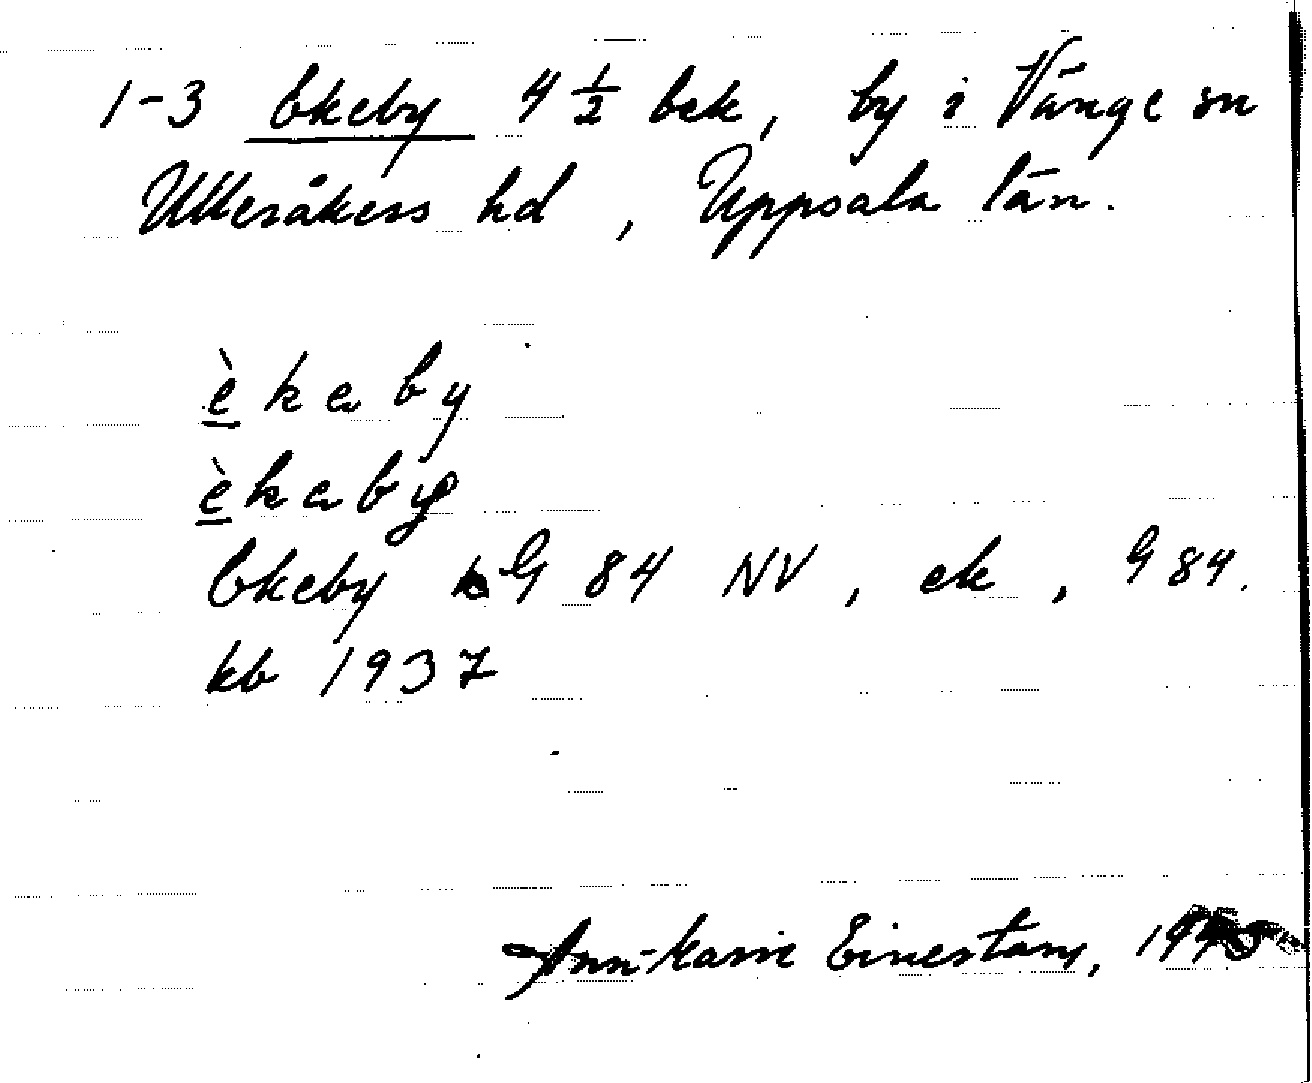 1-3 Ekeby 4 1/2 bek, by i Vänge sn
Ulleråkers hd, Uppsala län.
èkaby
èkaby
Ekeby kG 84 NV, ek, G 84.
kb 1937
Ann-Karin Einestam,